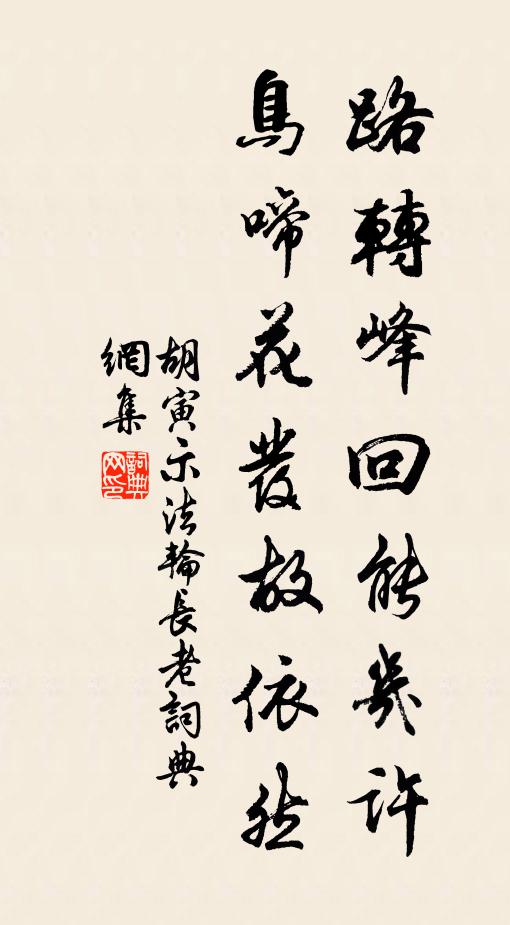 路轉峰回能幾許
鳥啼花發故依然
胡寅示法輪長老詞典
網集
詞典網印